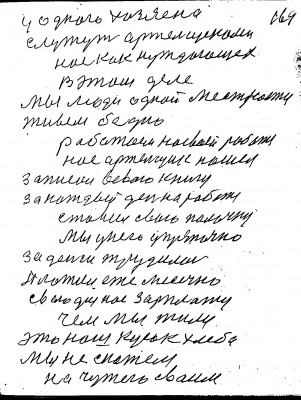 у одного хозяена
служут артельщеками
нас как нуждающех
в этом деле
мы люди одной местности
живем бедно
работаем на своей работи
нас артельщик нашел
записал в свою книгу
За каждый ден на работи
ставил свою палочку
мы у него
За деньги трудилис
Платил еже месечно
сводную нас зарплату
чем мы жили
это наш кусок хлеба
мы не скажем
на чужего своим